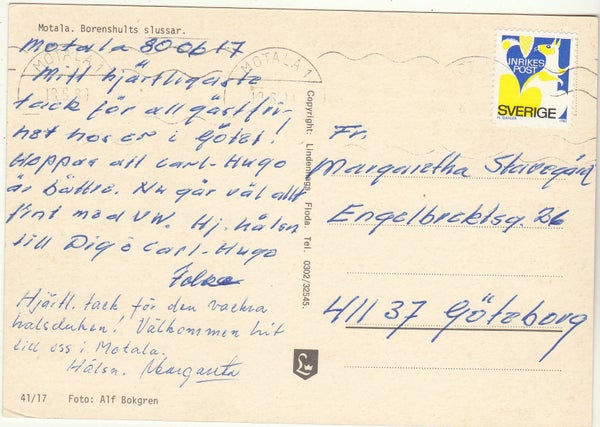 Motala. Borenshults slussar.
Motala 80 06 17
Mitt hjärtligaste
tack för all gästfri-
het hos er i Götet!
Hoppas att Carl-Hugo
är bättre. Nu går väl allt
fint med VW. Hj. häls
till Dig o Carl-Hugo
Folke
Hjärtl. tack för den vackra
halsduken! Välkommen hit
till oss i Motala.
Hälsn. Margareta
41/17 Foto: Alf Bokgren
Copyright: Lindenhags, Floda. Tel. 0302/32545.
MOTALA 1
MOTALA 1
INRIKES
POST
SVERIGE
Fr.
Margaretha Stavegård
Engelbrektsg. 26
411 37 Göteborg